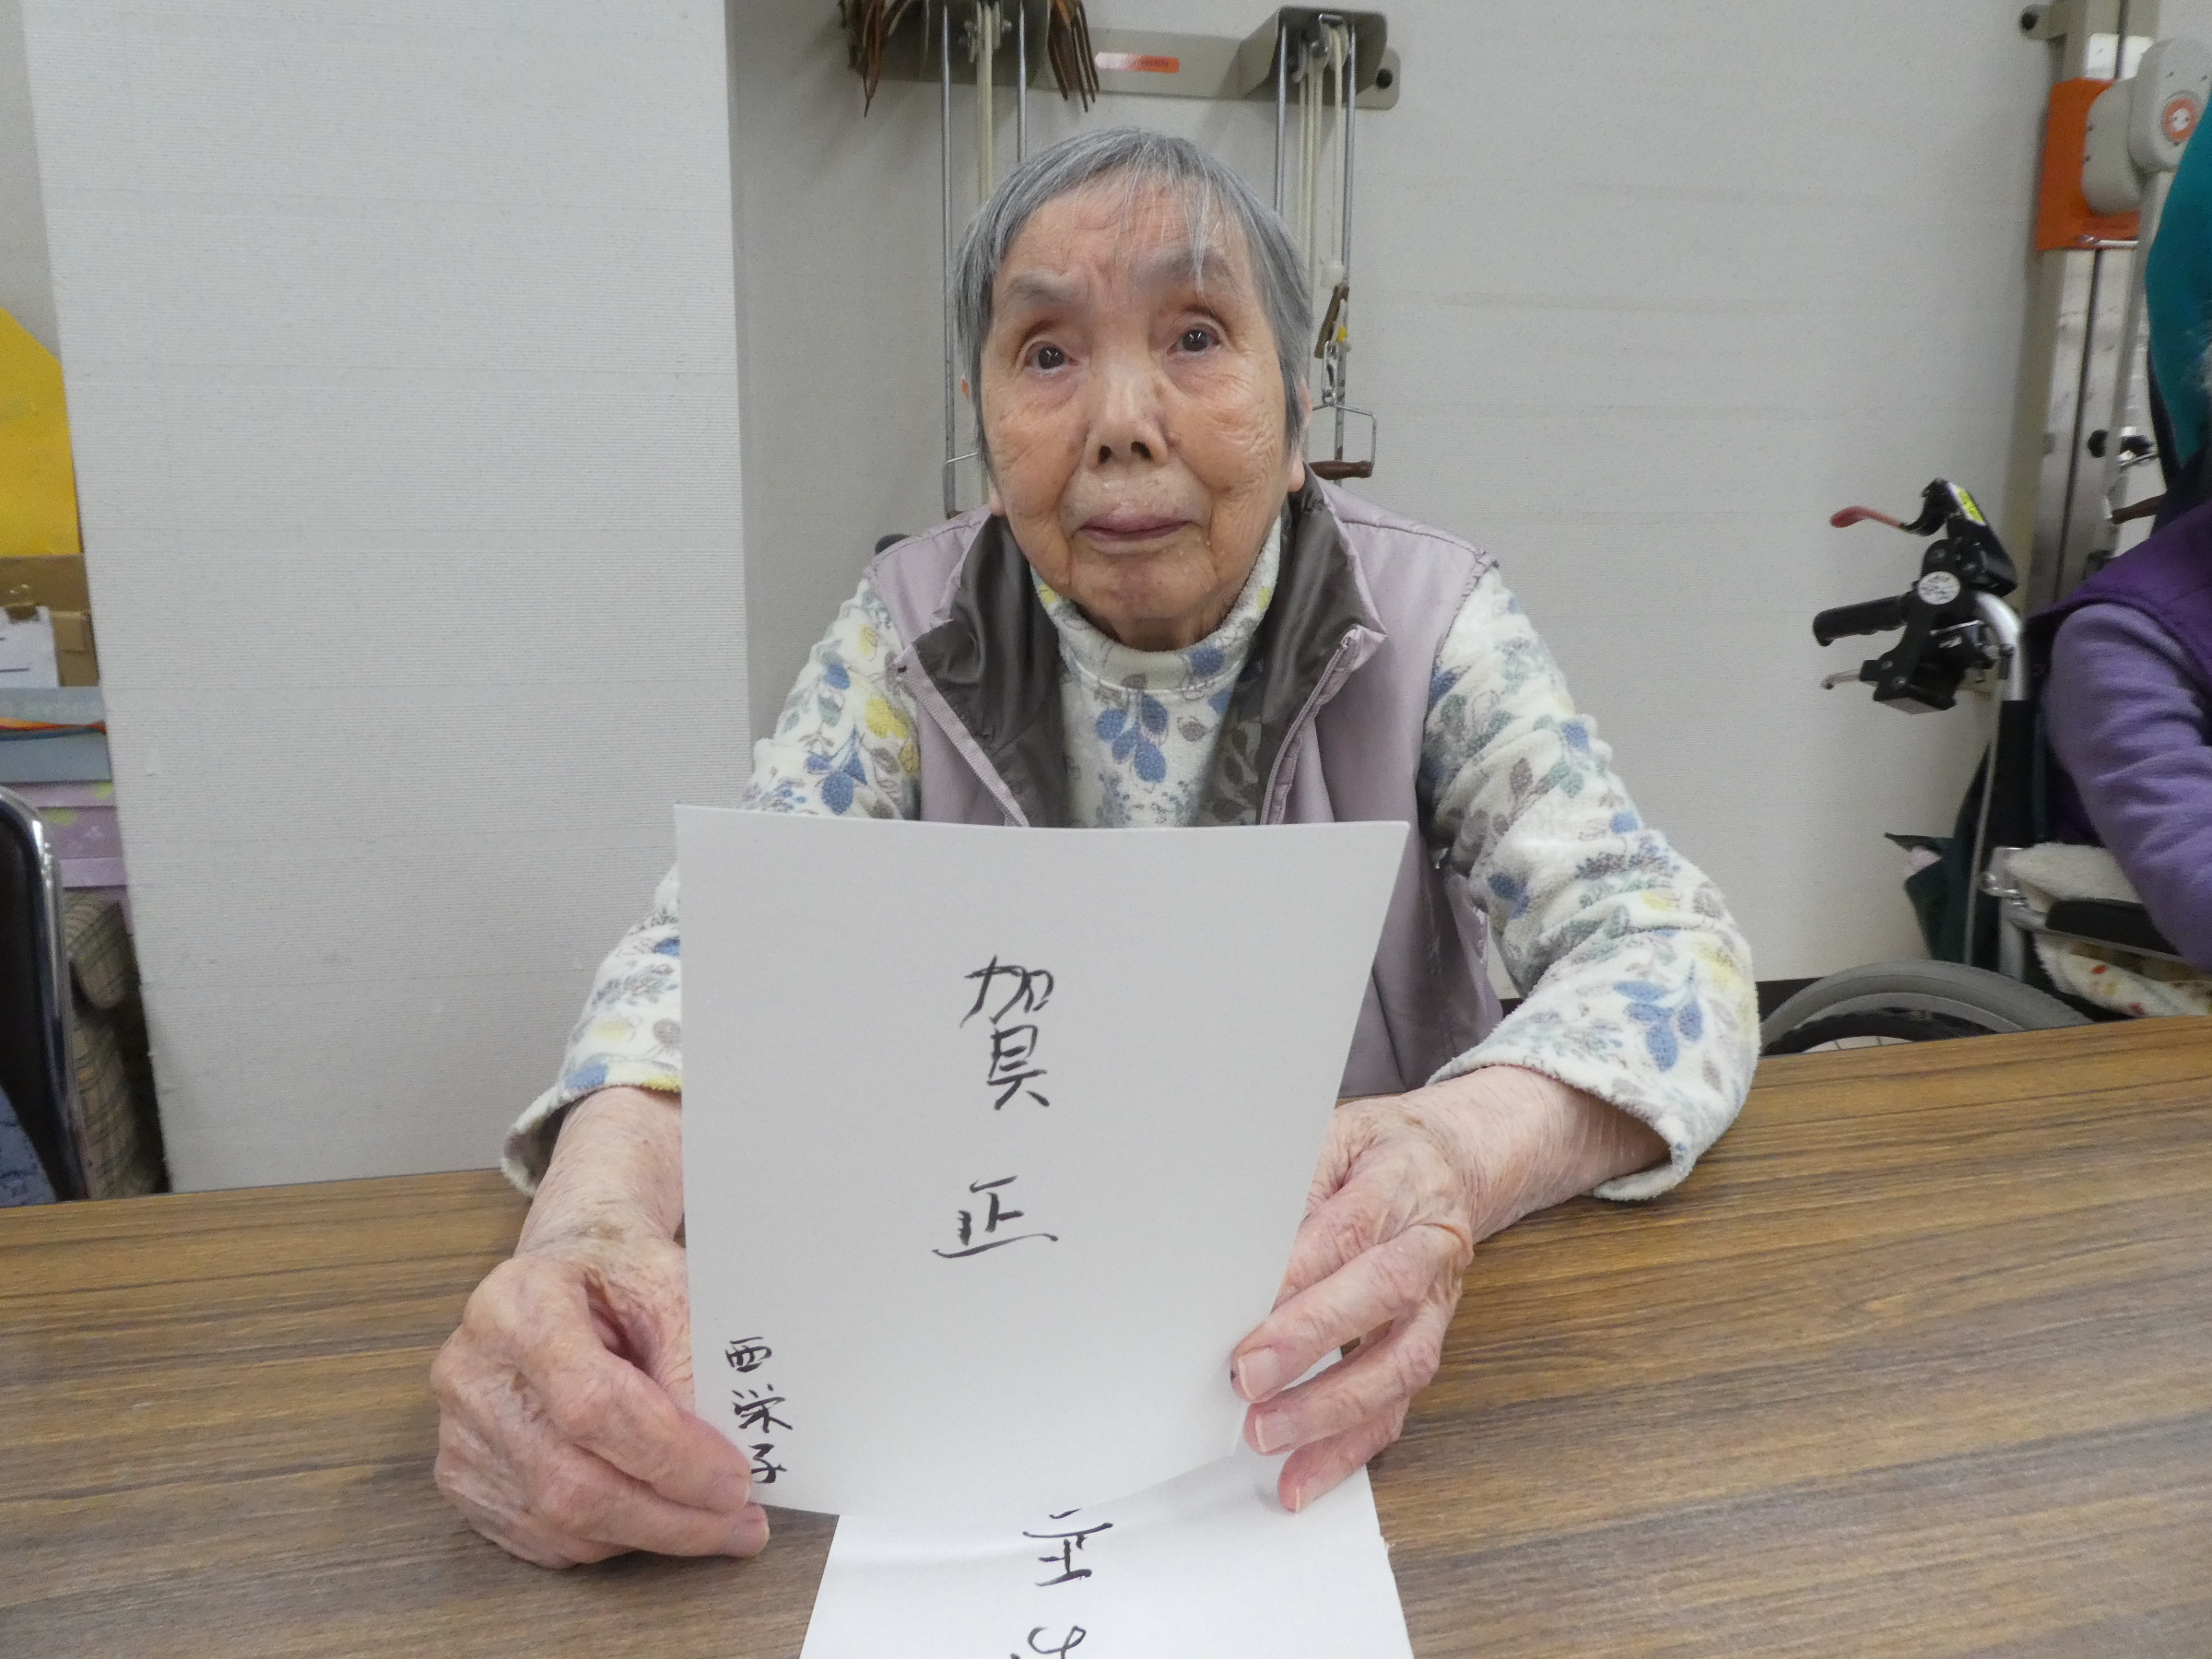 賀正
西栄子